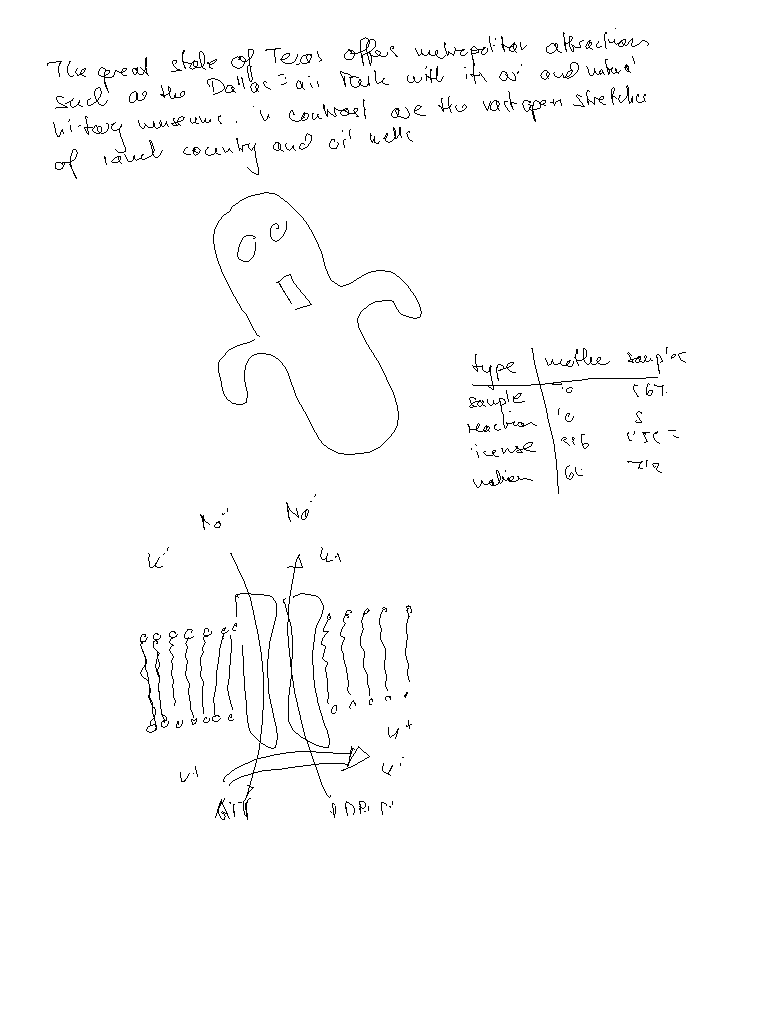 The great state of Texas offers metropolitan attractions
such as the Dallas Fair Park with its art and natural
history museums. In contrast are the vast open stretches
of ranch country and oil wells
type mother samples
sample 10 56%
reaction 10 5
license
nation
Na+ Na+
K+ K+
K+
K+ K+
ATP ADP+Pi